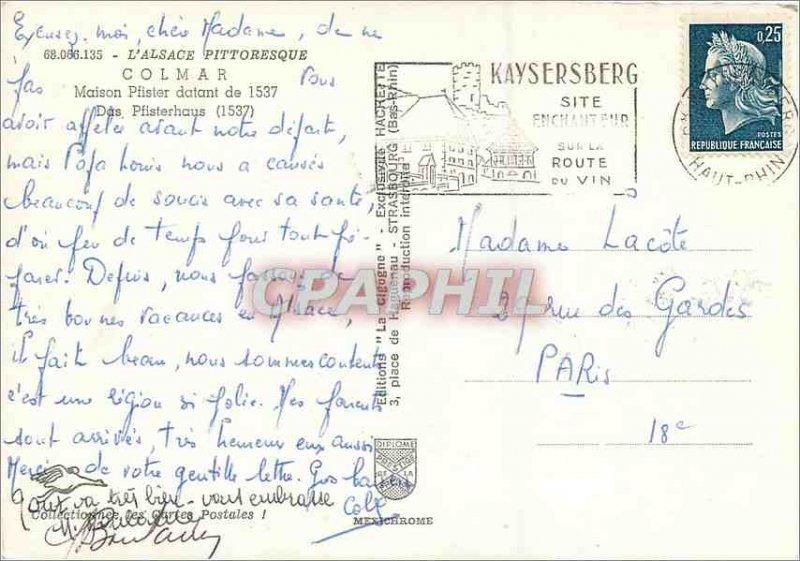 Excusez-moi, chère Madame, de ne
68.066.135 - L'ALSACE PITTORESQUE
COLMAR
Maison Pfister datant de 1537
Das Pfisterhaus (1537)
pas vous
avoir appelée avant notre départ,
mais Papa Louis nous a causés
beaucoup de soucis avec sa santé,
d'où peu de temps pour tout pré-
parer. Depuis, nous passons de
très bonnes vacances en Alsace,
il fait beau, nous sommes contents
c'est une région si jolie. Mes parents
sont arrivés, très heureux eux aussi
Merci de votre gentille lettre. Gros
Tout va très bien - vous embrasse
Collectionnez les Cartes Postales !
Editions "La Cigogne" - Exclusivité HACHETTE
3, place de Haguenau - STRASBOURG (Bas-Rhin)
Reproduction interdite
DIPLOME
MEXICHROME
KAYSERSBERG
SITE
ENCHANTEUR
SUR LA
ROUTE
DU VIN
0,25
POSTES
REPUBLIQUE FRANÇAISE
HAUT-RHIN
Madame Lacôte
29 rue des Gardes
PARIS
18e
CPAPHIL